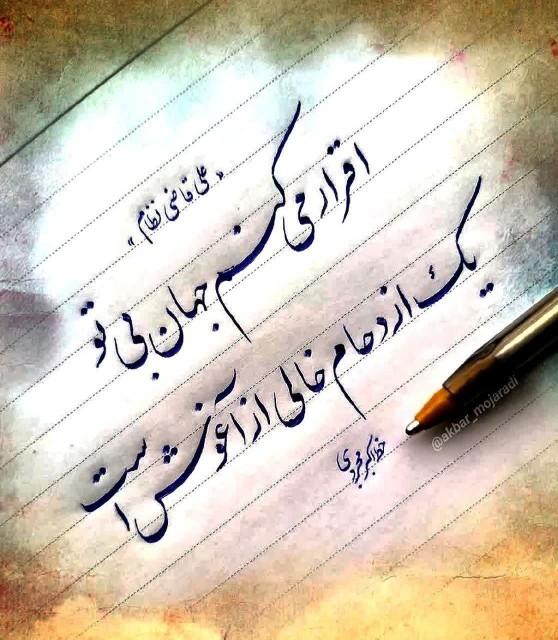 «علی قاضی نظام»
اقرار می کنم جهان بی تو
یک ازدحام خالی از آغوش است
خط اکبر مجردی
@akbar_mojaradi